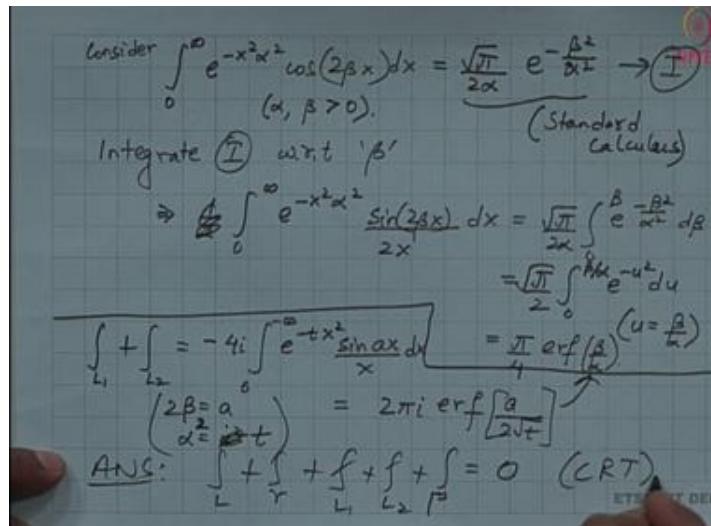 Consider ∫₀^∞ e^{-x²α²} cos(2βx)dx = √π/2α e^{-β²/α²} → Ⓘ
(α, β > 0).
(Standard calculus)
Integrate Ⓘ w.r.t 'β'
⇒ ∫₀^∞ e^{-x²α²} sin(2βx)/2x dx = √π/2α ∫₀^β e^{-β²/α²} dβ
= √π/2 ∫₀^{β/α} e^{-u²} du
(u = β/α)
= π/4 erf(β/α)
∫_{L₁} + ∫_{L₂} = -4i ∫₀^{-∞} e^{-tx²} sin ax/x dx
(2β = a
α² = t)
= 2πi erf[a/2√t]
ANS: ∫_L + ∫_r + ∫_{L₁} + ∫_{L₂} + ∫_Γ = 0 (CRT)